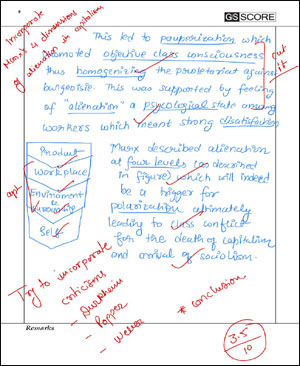 GS SCORE
Incorporate
Marx's 4 dimensions
of alienation in capitalism
This led to pauperization which
promoted objective class consciousness
thus homogenizing the proletariat against
burgeoisie. This was supported by feeling
of "alienation" a psycological state among
workers which meant strong disatisfaction
put
it
apt.
Product
Workplace
Environment &
Self
Marx described alienation
at four levels (as described
in figure) which will indeed
be a trigger for
polarization ultimately
leading to class conflict
for the death of capitalism
and arrival of socialism.
Try to incorporate
criticisms
- Durkheim
- Popper
- Weber
* Conclusion
3.5
10
Remarks